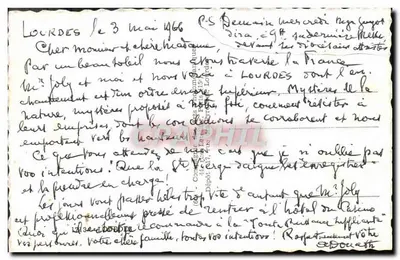 LOURDES le 3 mai 1966
P.S Demain mercredi Mgr
dira, à 9H sa dernière Messe
devant ses
Cher Monsieur et chère Madame,
Par un beau soleil nous avons traversé la France
Mr Joly et moi et nous voici à LOURDES dont l'en
chantement est d'un ordre supérieur. Mystères de la
nature, mystères proposés à notre foi, comment résister à
leurs emprises dont les conclusions se corroborent et nous
emportent vers les hauteurs!
Ce que vous attendez de moi c'est que je n'oublie pas
vos intentions! Que la Ste Vierge daigne les enregistrer
et la prendre en charge!
Les jours vont passer hélas trop vite d'autant que Mr Joly
est professionnellement pressé de rentrer à l'hôtel du Casino
Quoi qu'il en soit je recommande à la Toute Puissance suppliante
vos personnes, votre chère famille, toutes vos intentions! Respectueusement vôtre